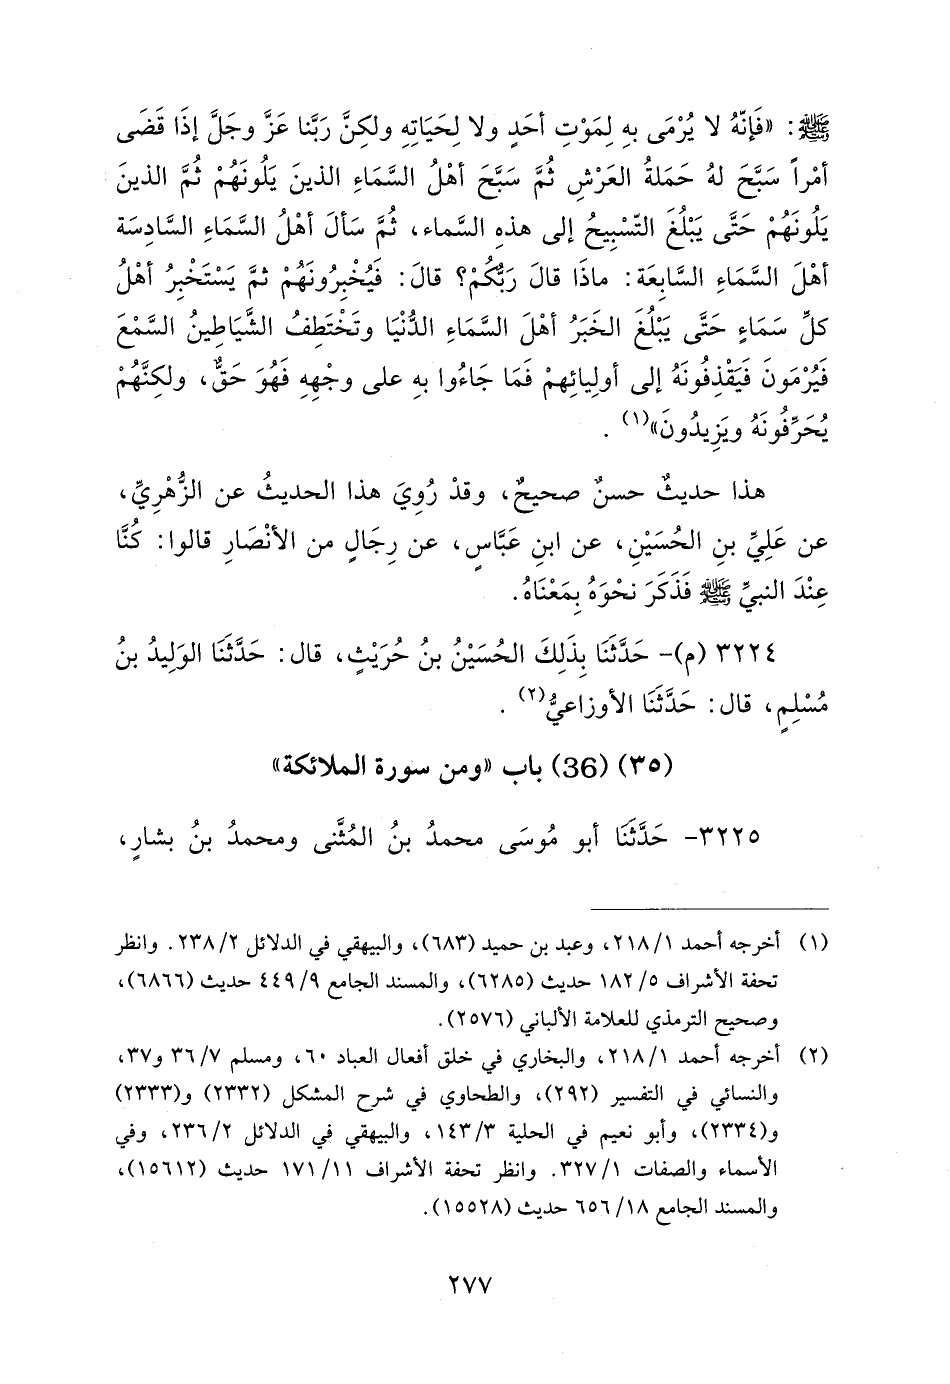 ﷺ: «فَإنّهُ لا يُرْمَى بِهِ لِمَوْتِ أحَدٍ ولا لِحَيَاتِهِ ولكِنَّ رَبَّنا عَزَّ وجَلَّ إذَا قَضَى
أمْراً سَبَّحَ لهُ حَمَلةُ العَرْشِ ثُمَّ سَبَّحَ أهْلُ السَّمَاءِ الذينَ يَلُونَهُمْ ثُمَّ الذينَ
يَلُونَهُمْ حَتَّى يَبْلُغَ التّسْبِيحُ إلى هذهِ السَّماء، ثُمَّ سَألَ أهْلُ السَّمَاءِ السَّادِسَة
أهْلَ السَّمَاءِ السَّابِعَة: ماذَا قالَ رَبُّكُمْ؟ قالَ: فَيُخْبِرُونَهُمْ ثمَّ يَسْتَخْبِرُ أهْلُ
كلِّ سَمَاءٍ حَتَّى يَبْلُغَ الخَبَرُ أهْلَ السَّمَاءِ الدُّنْيَا وتَخْتَطِفُ الشَّيَاطِينُ السَّمْعَ
فَيُرْمَونَ فَيَقْذِفُونَهُ إلى أولِيائِهِمْ فَمَا جَاءُوا بهِ على وجْهِهِ فَهُوَ حَقٌّ، ولكِنَّهُمْ
يُحَرِّفُونَهُ ويَزِيدُونَ»(١) .
هذا حديثٌ حسنٌ صحيحٌ، وقدْ رُوِيَ هذا الحديثُ عن الزُّهْرِيِّ،
عن عَلِيِّ بنِ الحُسَيْنِ، عن ابنِ عَبَّاسٍ، عن رِجَالٍ من الأنْصَارِ قالوا: كُنَّا
عِنْدَ النبيِّ ﷺ فَذَكَرَ نحْوَهُ بِمَعْنَاهُ.
٣٢٢٤ (م)- حَدَّثَنَا بِذَلِكَ الحُسَيْنُ بنُ حُرَيْثٍ، قال: حَدَّثَنَا الوَلِيدُ بنُ
مُسْلِمٍ، قال: حَدَّثَنَا الأوزاعيُّ(٢) .
(٣٥) (36) باب «ومن سورة الملائكة»
٣٢٢٥- حَدَّثَنَا أبو مُوسَى محمدُ بنُ المُثَّنى ومحمدُ بنُ بشارٍ،
(١) أخرجه أحمد ١/ ٢١٨، وعبد بن حميد (٦٨٣)، والبيهقي في الدلائل ٢/ ٢٣٨. وانظر
تحفة الأشراف ٥/ ١٨٢ حديث (٦٢٨٥)، والمسند الجامع ٩/ ٤٤٩ حديث (٦٨٦٦)،
وصحيح الترمذي للعلامة الألباني (٢٥٧٦).
(٢) أخرجه أحمد ١/ ٢١٨، والبخاري في خلق أفعال العباد ٦٠، ومسلم ٧/ ٣٦ و٣٧،
والنسائي في التفسير (٢٩٢)، والطحاوي في شرح المشكل (٢٣٣٢) و(٢٣٣٣)
و(٢٣٣٤)، وأبو نعيم في الحلية ٣/ ١٤٣، والبيهقي في الدلائل ٢/ ٢٣٦، وفي
الأسماء والصفات ١/ ٣٢٧. وانظر تحفة الأشراف ١١/ ١٧١ حديث (١٥٦١٢)،
والمسند الجامع ١٨/ ٦٥٦ حديث (١٥٥٢٨).
٢٧٧